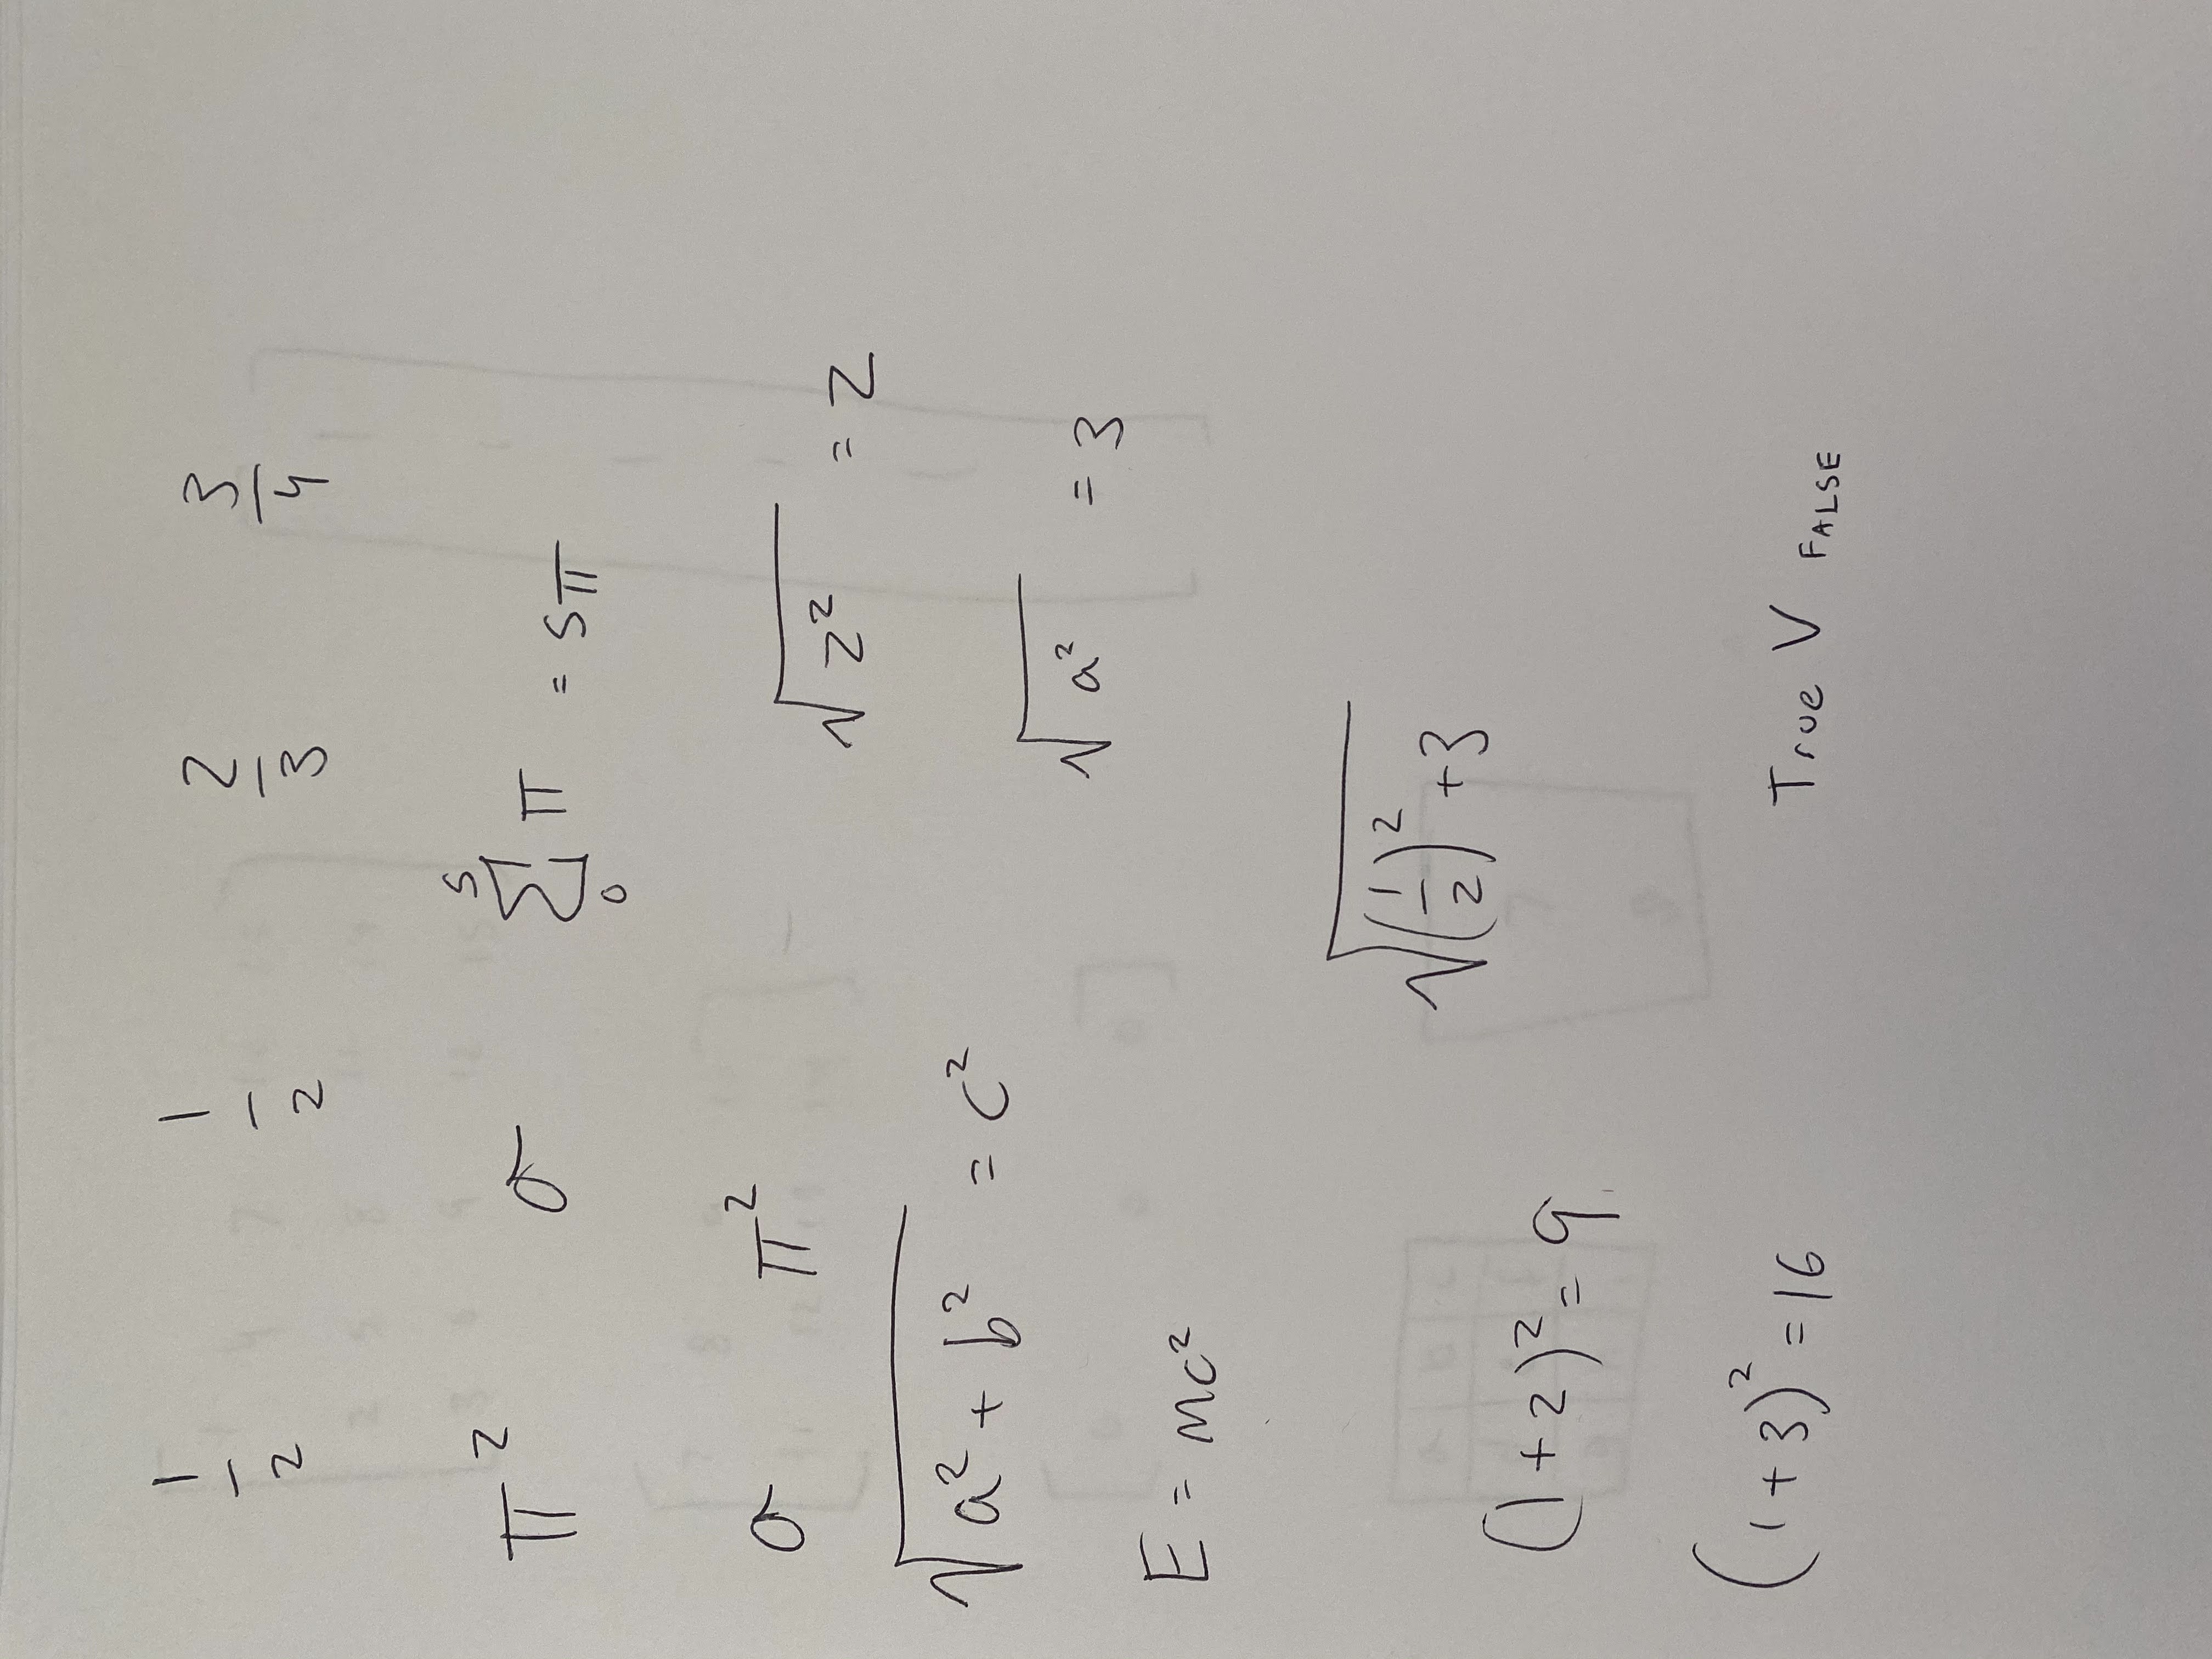 1/2 1/2 2/3 3/4
π² σ ∑₀⁵ π = 5π
σ π² √(z²) = z
√(a² + b²) = c²
√(a²) = 3
E = mc²
√((1/2)² + 3)
(1 + 2)² = 9
(1 + 3)² = 16 True V FALSE